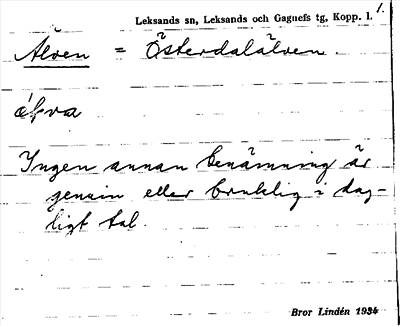 Leksands sn, Leksands och Gagnefs tg, Kopp. l. 1.
Älven = Österdalälven.
Ingen annan benämning är
genuin eller bruklig i dag-
ligt tal.
Bror Lindén 1934